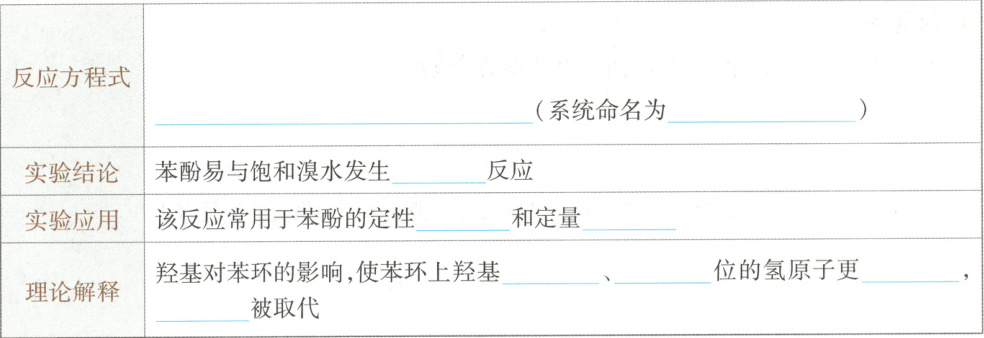 反应方程式
(系统命名为 )
实验结论
苯酚易与饱和溴水发生 反应
实验应用
该反应常用于苯酚的定性 和定量
理论解释
羟基对苯环的影响,使苯环上羟基 、 位的氢原子更 ,
被取代